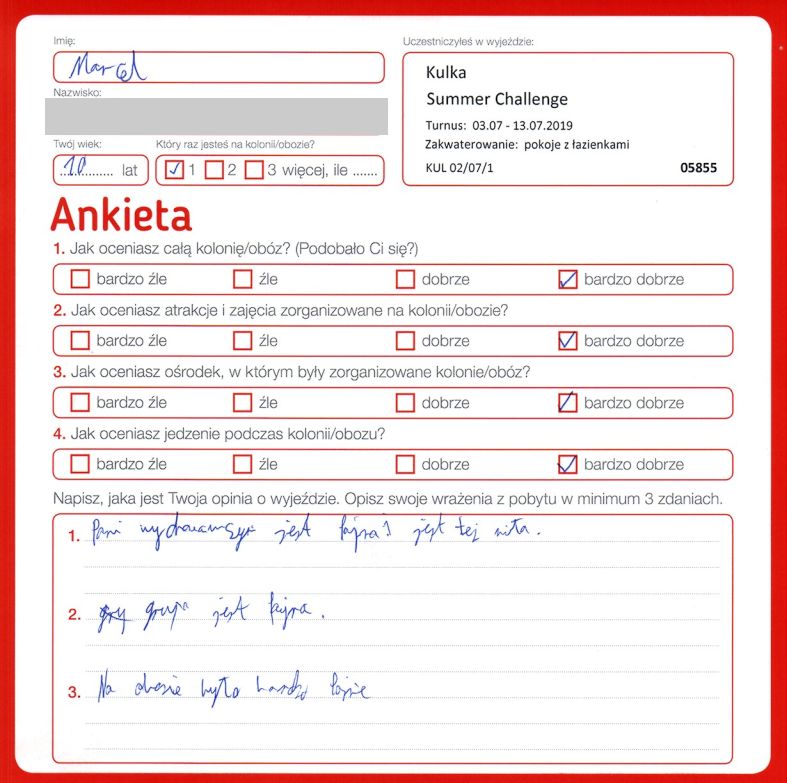 Imię:
Marcel
Uczestniczyłeś w wyjeździe:
Kulka
Summer Challenge
Turnus: 03.07 - 13.07.2019
Zakwaterowanie: pokoje z łazienkami
KUL 02/07/1 05855
Nazwisko:
Twój wiek: Który raz jesteś na kolonii/obozie?
10 lat 1 2 3 więcej, ile .......
Ankieta
1. Jak oceniasz całą kolonię/obóz? (Podobało Ci się?)
bardzo źle źle dobrze bardzo dobrze
2. Jak oceniasz atrakcje i zajęcia zorganizowane na kolonii/obozie?
bardzo źle źle dobrze bardzo dobrze
3. Jak oceniasz ośrodek, w którym były zorganizowane kolonie/obóz?
bardzo źle źle dobrze bardzo dobrze
4. Jak oceniasz jedzenie podczas kolonii/obozu?
bardzo źle źle dobrze bardzo dobrze
Napisz, jaka jest Twoja opinia o wyjeździe. Opisz swoje wrażenia z pobytu w minimum 3 zdaniach.
1. Pani jest fajna jest też miła.
2. grupa jest fajna.
3. Na obozie było bardzo fajnie